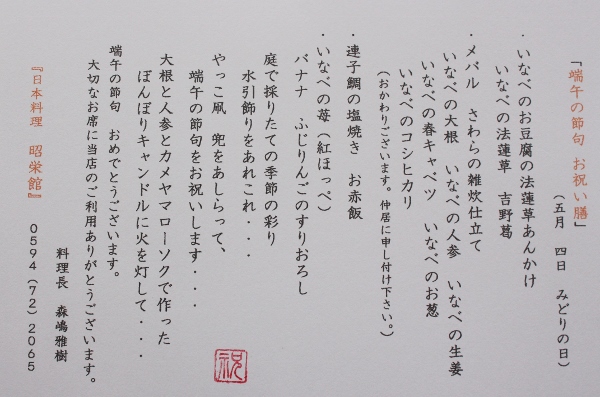 「端午の節句　お祝い膳」
（五月　四日　みどりの日）
・いなべのお豆腐の法蓮草あんかけ
いなべの法蓮草　吉野葛
・メバル　さわらの雑炊仕立て
いなべの大根　いなべの人参　いなべの生姜
いなべの春キャベツ　いなべのお葱
いなべのコシヒカリ
（おかわりございます。仲居に申し付け下さい。）
・連子鯛の塩焼き　お赤飯
・いなべの苺（紅ほっぺ）
バナナ　ふじりんごのすりおろし
庭で採りたての季節の彩り
水引飾りをあれこれ・・・
やっこ凧　兜をあしらって、
端午の節句をお祝いします・・・
大根と人参とカメヤマローソクで作った
ぼんぼりキャンドルに火を灯して・・・
端午の節句　おめでとうございます。
大切なお席に当店のご利用ありがとうございます。
料理長　森嶋雅樹
『日本料理　昭栄館』　0594（72）2065
祝